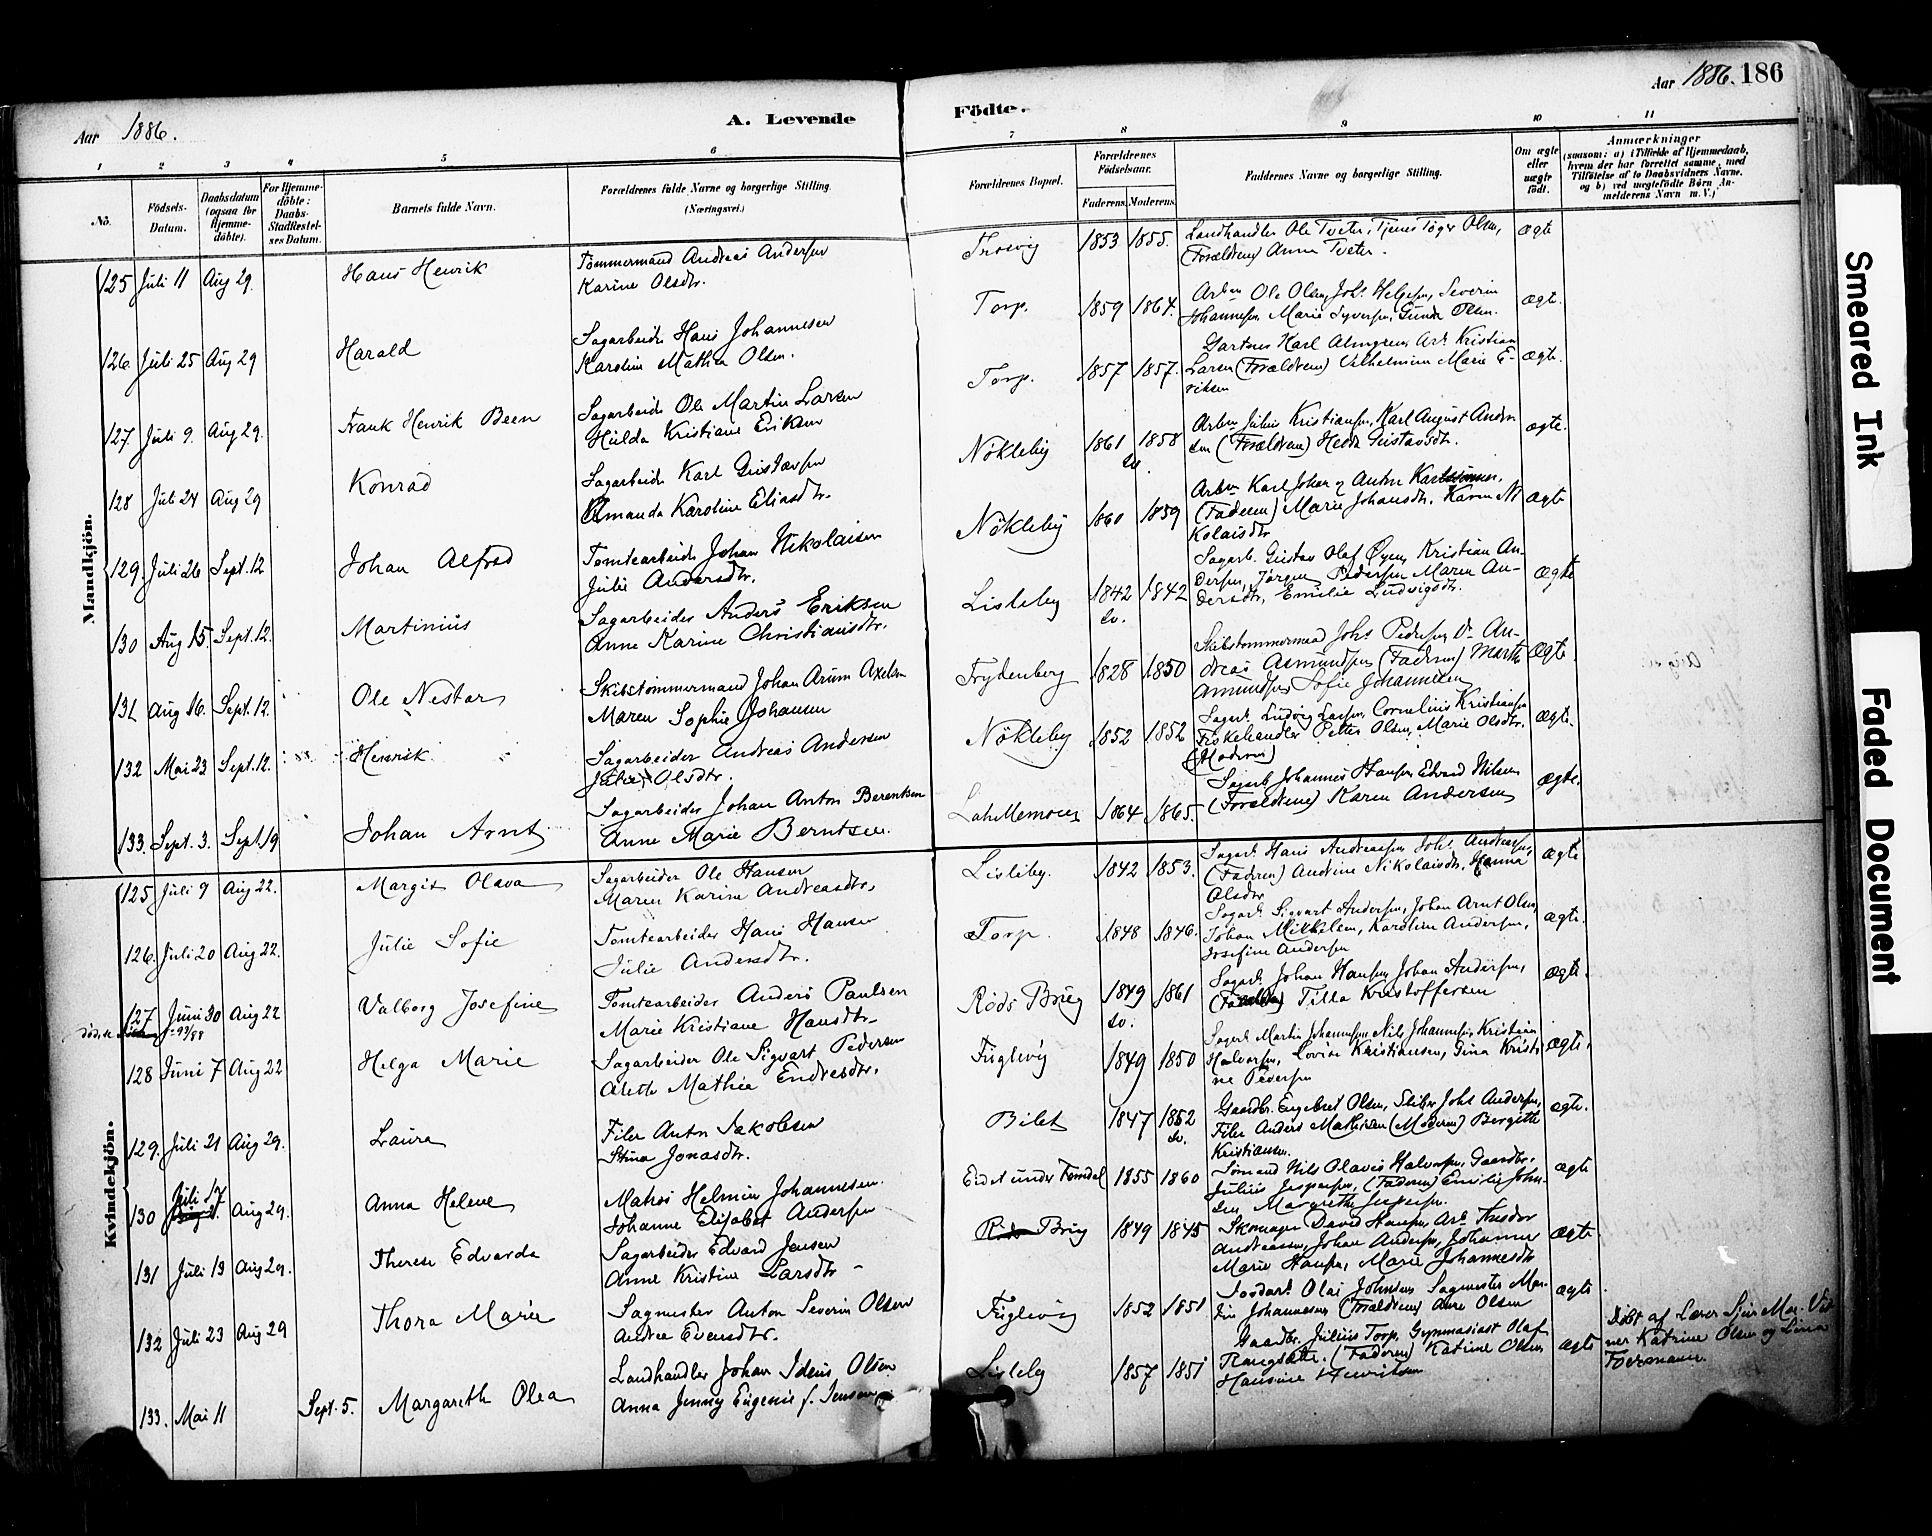 Aar 1886.
A. Levende
Födte.
Aar 1886. 186
1 2 3 4 5 6 7 8 9 10 11
No.
Födsels-
Datum.
Daabsdatum
(ogsaa for
Hjemme-
döbte).
For Hjemme-
döbte:
Daabs-
Stadfæstel-
ses Datum.
Barnets fulde Navn.
Forældrenes fulde Navne og borgerlige Stilling.
(Næringsvei.)
Forældrenes Bopæl.
Forældrenes
Födselsaar.
Faderens. Moderens.
Faddernes Navne og borgerlige Stilling.
Om ægte
eller
uægte
födt.
Anmærkninger
(saasom: a) i Tilfælde af Hjemmedaab,
hvem der har forrettet samme, med
Tilföielse af to Daabsvidners Navne.
og b) ved uægtefödte Börn An-
melderens Navn m. V.)
Mandkjön.
125 Juli 11 Aug 29. Hans Henrik
Tømmermand Andreas Andersen
Karine Olsdtr.
Trosvig 1853 1855.
Landhandler Ole Tveter, Tjenes Tøger Olsen,
(Forældrene) Anne Tveter.
ægte
126. Juli 25 Aug 29 Harald
Sagarbeider Hans Johannesen
Karoline Mathea Olsen.
Torp. 1859 1864.
Arbm Ole Olsen, Johs Helgesen, Severin
Johannesen Marie Syversen, Gunda Olsen.
ægte.
127 Juli 9. Aug 29. Frank Henrik Been
Sagarbeider Ole Martin Larsen
Hilda Kristiane Eriksen
Torp. 1857 1857.
Gartner Karl Almgren, Arb. Kristian
Larsen (Forældrene) Vilhelmine Marie E-
riksen
ægte.
128 Juli 24 Aug 29 Konrad
Sagarbeider Karl Gustavsen
Amanda Karoline Eliasdtr.
Nökleby 1861 1858
sv.
Arbm Julius Kristiansen, Karl August Ander
sen (Forældrene) Hedda Gustavsdtr.
ægte.
129. Juli 26 Sept. 12 Johan Alfred
Tomtearbeider Johan Nikolaisen
Julie Andersdtr.
Nökleby 1860 1859
Arbm Karl Johan og Anton
(Faderen) Marie Johansdtr. Karen Ni
kolaisdtr
ægte
130 Aug 15. Sept. 12. Martinius
Sagarbeider Anders Eriksen
Anne Karine Christiansdtr.
Lisleby 1842 1842
sv.
Sagarb. Gustav Olaf Øyen, Kristian An-
dersen, Jørgen Pedersen Maren An-
dersdtr, Emilie Ludvigsdtr.
ægte
131 Aug 16. Sept. 12. Ole Nestar
Skibstømmermand Johan Arum Axelsen
Maren Sophie Johansen
Frydenberg 1828 1850
Skibstømmermand Johs Pedersen, Do An-
dreas Asmundsen (Faderen) Marthe
Amundsen, Sofie Johannesen
ægte.
132 Mai 23 Sept. 12. Henrik
Sagarbeider Andreas Andersen
Julie Olsdtr.
Nökleby 1852 1852
Sagarb. Ludvig Larsen, Cornelius Kristiansen
Fiskehandler Petter Olsen, Marie Olsdtr.
(Moderen)
ægte.
133. Sept. 3. Sept. 19 Johan Arnt
Sagarbeider Johan Anton Berentsen
Anne Marie Berntsen.
1864 1865.
Sagarb. Johannes Hansen Edvard Nilsen
(Forældrene) Karen Andersen
ægte.
Kvindekjön.
125 Juli 9 Aug 22. Margit Olava
Sagarbeider Ole Hansen
Maren Karine Andreasdtr.
Lisleby. 1842 1853.
Sagarb. Hans Andreassen Johs. Andreasen,
(Faderen) Andrine Nikolaisdtr, Hanna
Olsdtr
ægte
126. Juli 20 Aug 22. Julie Sofie
Tomtearbeider Hans Hansen
Julie Andersdtr.
Torp. 1848 1846.
Sagarb. Sigvart Andersen, Johan Arnt Olsen,
Johan Mikkelsen, Karoline Andersen,
Josefine Andersen
ægte.
127 Juni 30 Aug 22 Valborg Josefine
Tomtearbeider Anders Paulsen
Marie Kristiane Hansdtr.
Röds Brug 1849 1861
sv.
Sagarb. Johan Hansen, Johan Andersen,
Tilla Kristoffersen
ægte.
128 Juni 7 Aug 22 Helga Marie
Sagarbeider Ole Sigvart Pedersen
Alette Mathea Endresdtr.
Fuglevig 1849 1850
Sagarb. Martin Johannesen Nils Johannesen, Kristian
Halvorsen, Lovise Kristiansen, Gina Kristi
ne Pedersen
ægte.
129. Juli 21 Aug 29. Laura
Filer Anton Jakobsen
Stina Jonasdtr.
Bilet 1847 1852
sv.
Gaardbr. Engebret Olsen, Sliber Johs Andersen,
Filer Anders Mathisen (Moderen) Bergitte
Kristiansen.
ægte.
130 Juli 17 Aug 29. Anna Helene
Matros Helmin Johannesen.
Johanne Elisabet Andersen
Eidet under Femdal 1855 1860
Sømand Nils Olaves Halvorsen, Gaardbr.
Julius Jespersen, (Faderen) Emilie John-
sen Margrethe Jespersen.
ægte
131 Juli 13 Aug 29. Therese Edvarda
Sagarbeider Edvard Jensen
Anne Kristine Larsdtr
Brug 1849 1845
Skomager David Hansen, Arb. Theodor
Andreassen, Johan Andersen, Johanne
Marie Hansen, Marie Johannesdtr
ægte
132 Juli 23 Aug 29 Thora Marie
Sagmester Anton Severin Olsen
Andrea Evensdtr.
Fuglevig 1852 1851
Olai Johnsen Sagmester Mar-
tin Johannesen (Forældrene) Anne Olsen
ægte
133. Mai 11 Sept. 5. Margareth Olea
Landhandler Johan Idenis Olsen
Anna Jenny Eugenie f. Jensen
Lisleby 1857 1851
Gaardbr. Julius Torp, Gymnasiast Olaf
(Faderen) Katrine Olsen
Hansine Henriksen
ægte
Døbt af Lærer Vid
ner Katrine Olsen og Lina
Foermann.
Smeared Ink
Faded Document